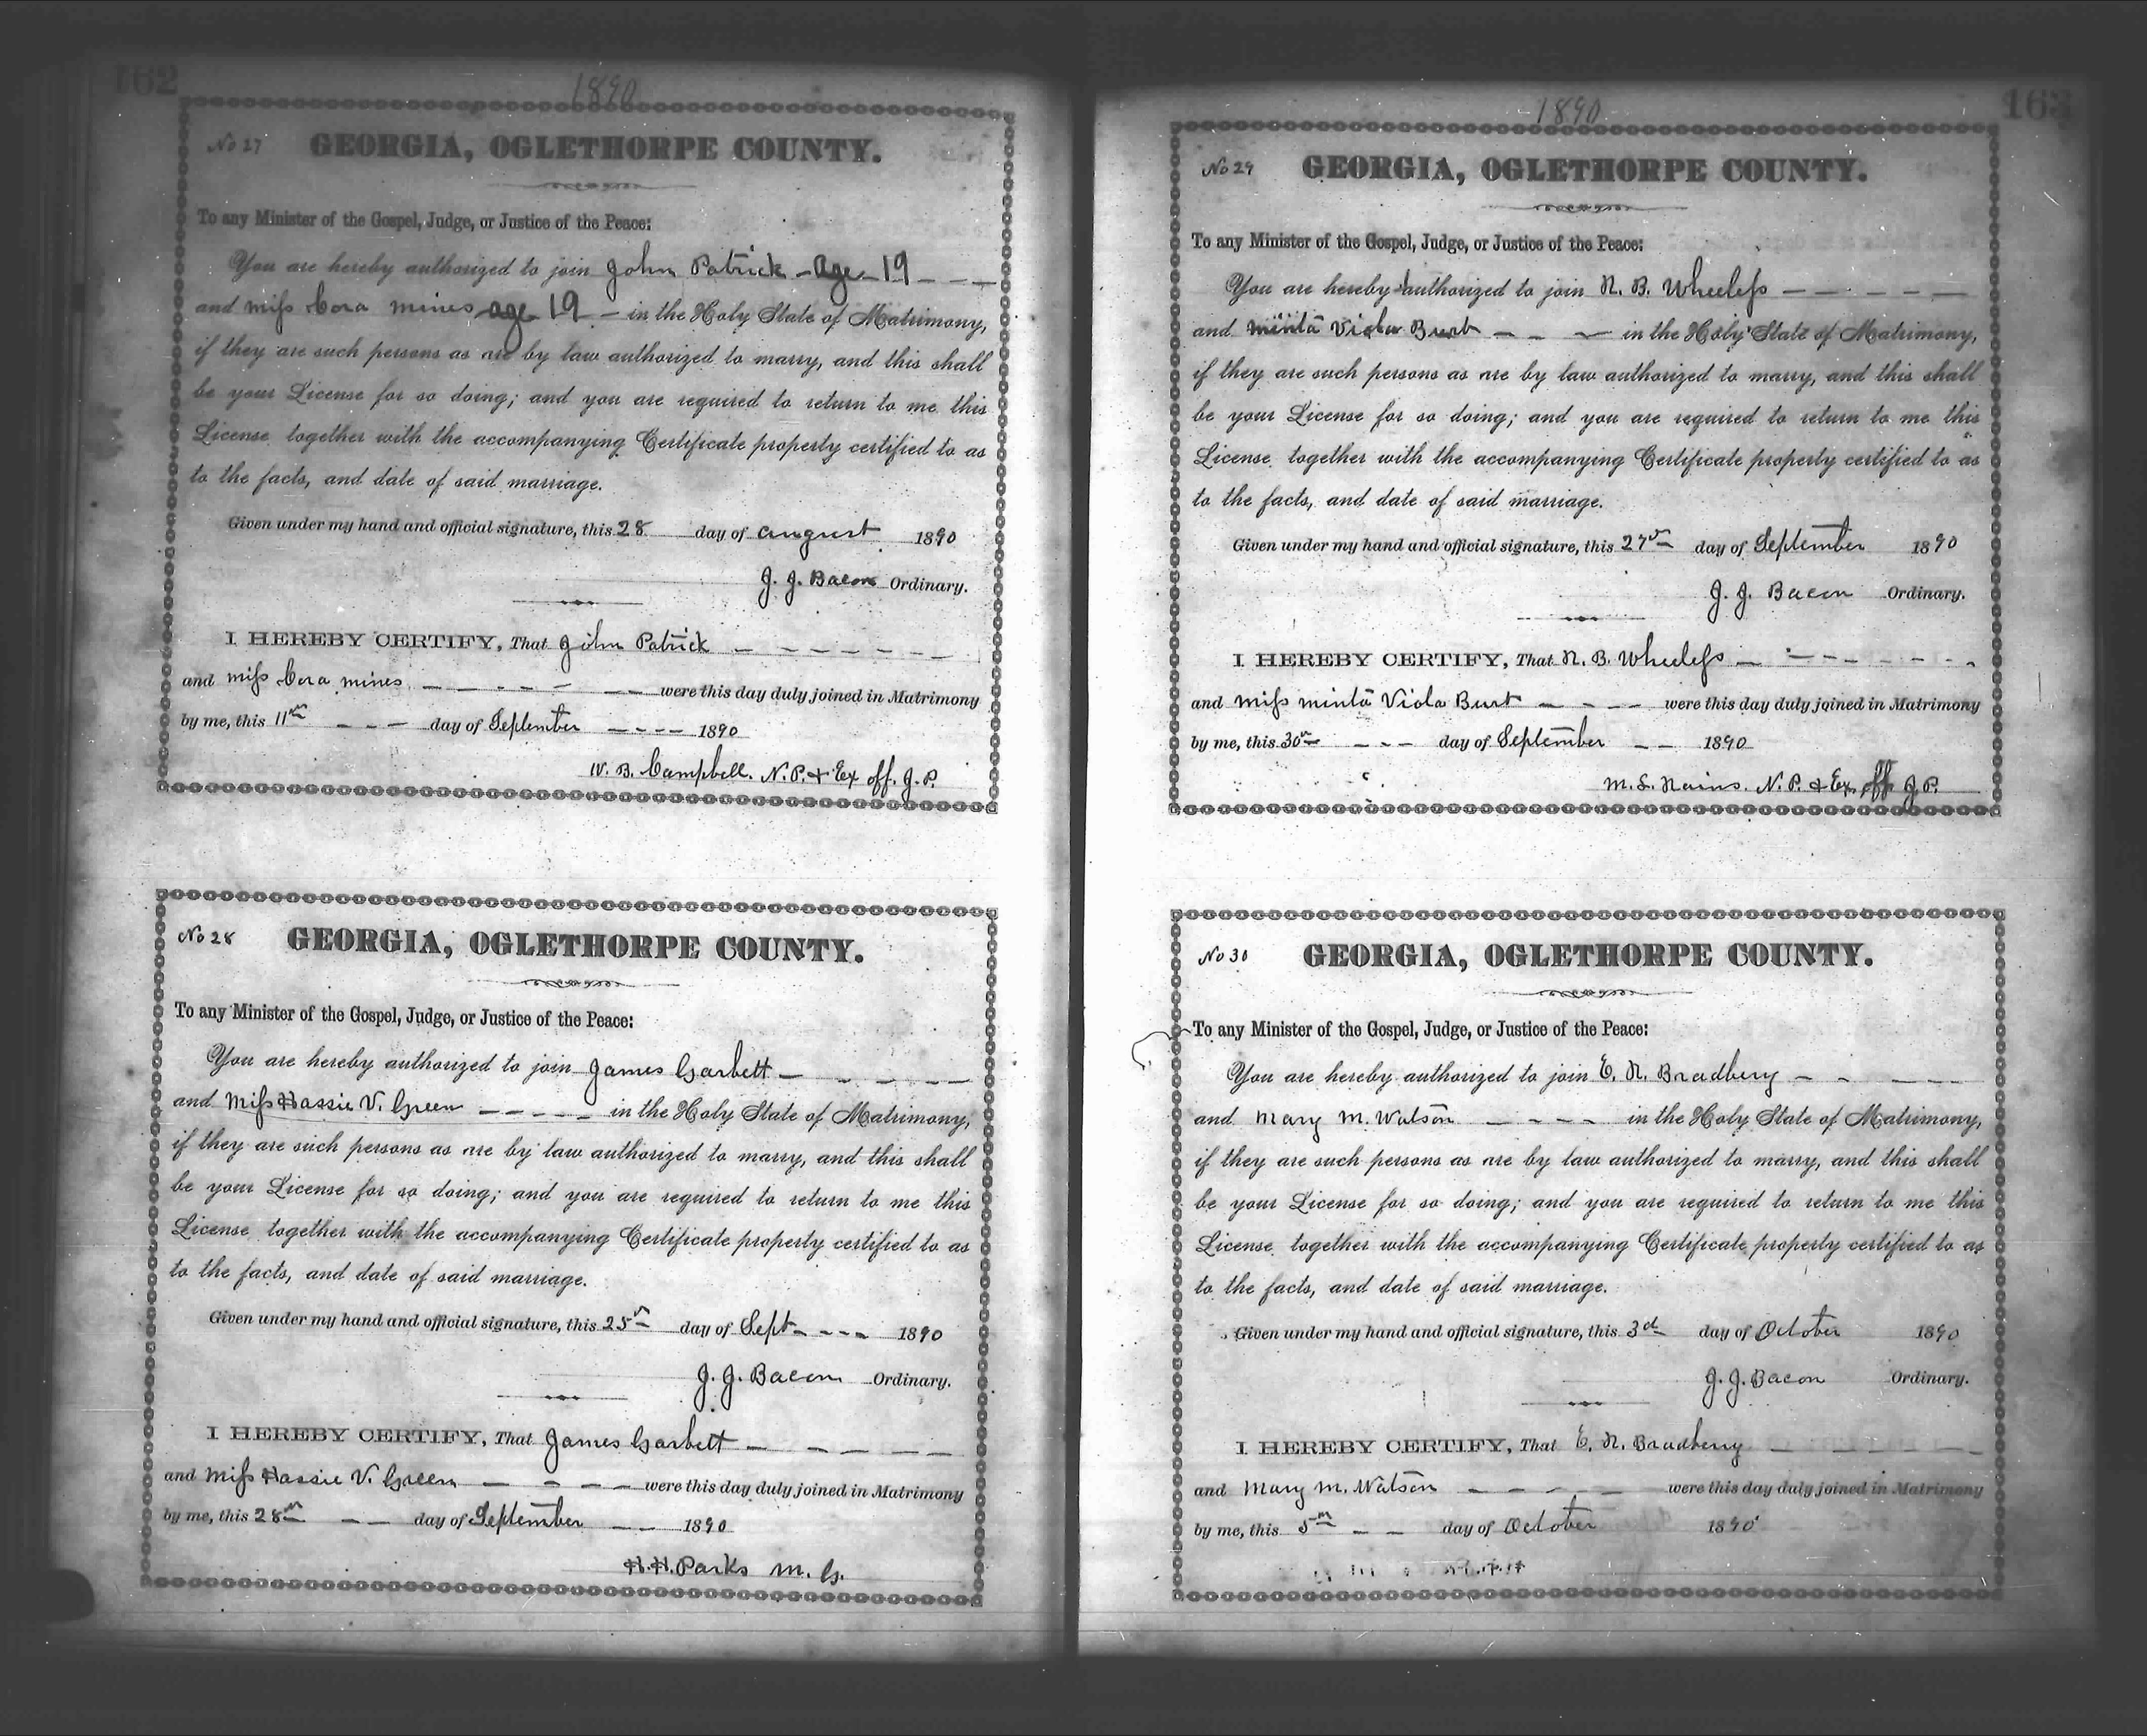 162
1890
No 27 GEORGIA, OGLETHORPE COUNTY.
To any Minister of the Gospel, Judge, or Justice of the Peace:
You are hereby authorized to join John Patrick - age 19
and miss Cora mines age 19 - in the Holy State of Matrimony,
if they are such persons as are by law authorized to marry, and this shall
be your License for so doing; and you are required to return to me this
License together with the accompanying Certificate property certified to as
to the facts, and date of said marriage.
Given under my hand and official signature, this 28 day of august 1890
J. J. Bacon Ordinary.
I HEREBY CERTIFY, That John Patrick
and miss Cora mines were this day duly joined in Matrimony
by me, this 11th day of September 1890
W. B. Campbell. N. P. & Ex off. J. P.
No 28 GEORGIA, OGLETHORPE COUNTY.
To any Minister of the Gospel, Judge, or Justice of the Peace:
You are hereby authorized to join James Garbett
and Miss Hassie V. Green in the Holy State of Matrimony,
if they are such persons as are by law authorized to marry, and this shall
be your License for so doing; and you are required to return to me this
License together with the accompanying Certificate property certified to as
to the facts, and date of said marriage.
Given under my hand and official signature, this 25th day of Sept 1890
J. J. Bacon Ordinary.
I HEREBY CERTIFY, That James Garbett
and Miss Hassie V. Green were this day duly joined in Matrimony
by me, this 28th day of September 1890
H. H. Parks M. G.
163
1890
No 29 GEORGIA, OGLETHORPE COUNTY.
To any Minister of the Gospel, Judge, or Justice of the Peace:
You are hereby authorized to join N. B. Wheeless
and minta Viola Burt in the Holy State of Matrimony,
if they are such persons as are by law authorized to marry, and this shall
be your License for so doing; and you are required to return to me this
License together with the accompanying Certificate property certified to as
to the facts, and date of said marriage.
Given under my hand and official signature, this 27th day of September 1890
J. J. Bacon Ordinary.
I HEREBY CERTIFY, That N. B. Wheeless
and miss minta Viola Burt were this day duly joined in Matrimony
by me, this 30th day of September 1890
M. L. N. P. & Ex. off J. P.
No 30 GEORGIA, OGLETHORPE COUNTY.
To any Minister of the Gospel, Judge, or Justice of the Peace:
You are hereby authorized to join E. N. Bradberry
and Mary M. Watson in the Holy State of Matrimony,
if they are such persons as are by law authorized to marry, and this shall
be your License for so doing; and you are required to return to me this
License together with the accompanying Certificate property certified to as
to the facts, and date of said marriage.
Given under my hand and official signature, this 3d day of October 1890
J. J. Bacon Ordinary.
I HEREBY CERTIFY, That E. N. Bradberry
and Mary M. Watson were this day duly joined in Matrimony
by me, this 5th day of October 1890